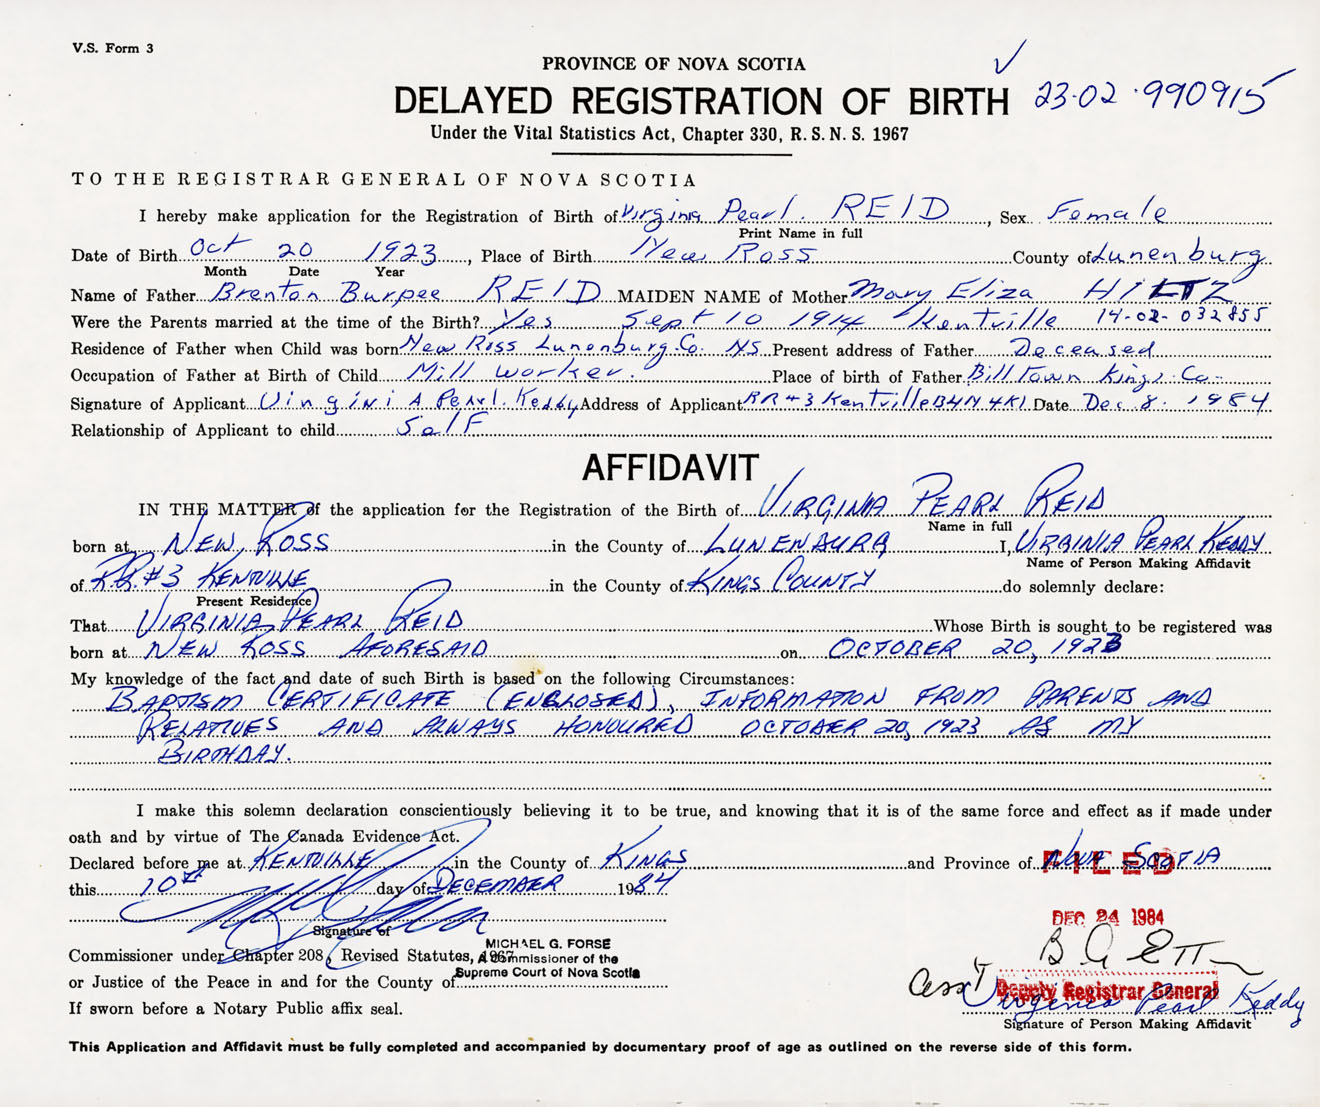 V.S. Form 3
PROVINCE OF NOVA SCOTIA
DELAYED REGISTRATION OF BIRTH 23-02-990915
Under the Vital Statistics Act, Chapter 330, R.S.N.S. 1967
TO THE REGISTRAR GENERAL OF NOVA SCOTIA
I hereby make application for the Registration of Birth of Virginia Pearl. REID, Sex Female
Print Name in full
Date of Birth Oct 20 1923, Place of Birth New Ross County of Lunenburg
Month Date Year
Name of Father Brenton Burpee REID MAIDEN NAME of Mother Mary Eliza HILTZ
Were the Parents married at the time of the Birth? Yes Sept 10 1914 Kentville 14-02-032855
Residence of Father when Child was born New Ross Lunenburg Co. NS Present address of Father Deceased
Occupation of Father at Birth of Child Mill worker. Place of birth of Father Billtown Kings Co-
Signature of Applicant Virginia Pearl. Keddy Address of Applicant RR#3 Kentville B4N 4K1 Date Dec. 8. 1984
Relationship of Applicant to child Self
AFFIDAVIT
IN THE MATTER of the application for the Registration of the Birth of VIRGINIA PEARL REID
Name in full
born at NEW ROSS in the County of LUNENBURG I, VIRGINIA PEARL KEDDY
Name of Person Making Affidavit
of R.R.#3 KENTVILLE in the County of KINGS COUNTY do solemnly declare:
Present Residence
That VIRGINIA PEARL REID Whose Birth is sought to be registered was
born at NEW ROSS AFORESAID on OCTOBER 20, 1923
My knowledge of the fact and date of such Birth is based on the following Circumstances:
BAPTISM CERTIFICATE (ENCLOSED), INFORMATION FROM PARENTS AND
RELATIVES AND ALWAYS HONOURED OCTOBER 20, 1923 AS MY
BIRTHDAY.
I make this solemn declaration conscientiously believing it to be true, and knowing that it is of the same force and effect as if made under
oath and by virtue of The Canada Evidence Act.
Declared before me at KENTVILLE in the County of KINGS and Province of NOVA SCOTIA
FILED
this 10th day of DECEMBER 1984
DEC 24 1984
Signature of
Commissioner under Chapter 208, Revised Statutes, 1967
MICHAEL G. FORSE
A Commissioner of the
Supreme Court of Nova Scotia
or Justice of the Peace in and for the County of
Asst Deputy Registrar General
Virginia Pearl Keddy
If sworn before a Notary Public affix seal.
Signature of Person Making Affidavit
This Application and Affidavit must be fully completed and accompanied by documentary proof of age as outlined on the reverse side of this form.